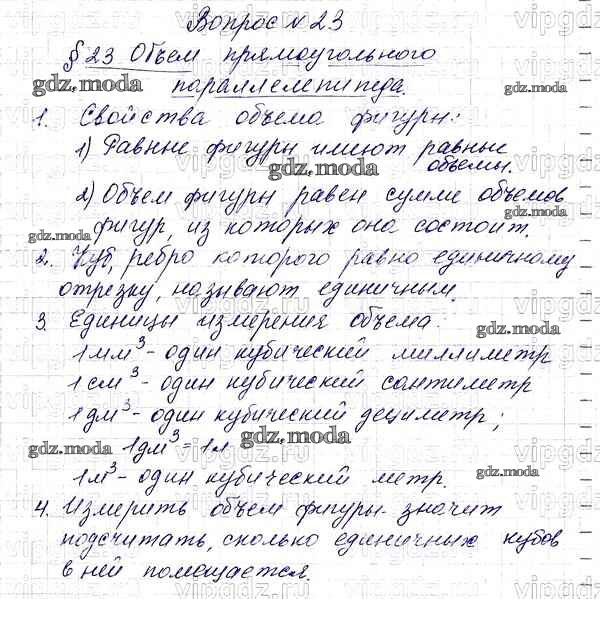 Вопрос №23
§23 Объем прямоугольного
параллелепипеда.
1. Свойства объема фигуры:
1) Равные фигуры имеют равные
объемы.
2) Объем фигуры равен сумме объемов
фигур, из которых она состоит.
2. Куб, ребро которого равно единичному
отрезку, называют единичным.
3. Единицы измерения объема:
1 мм³ - один кубический миллиметр
1 см³ - один кубический сантиметр
1 дм³ - один кубический дециметр;
1 дм³ = 1 л
1 м³ - один кубический метр.
4. Измерить объем фигуры - значит
подсчитать, сколько единичных кубов
в ней помещается.
gdz.moda
gdz.moda
gdz.moda
gdz.moda
gdz.moda
gdz.moda
gdz.moda
gdz.moda
gdz.moda
gdz.moda